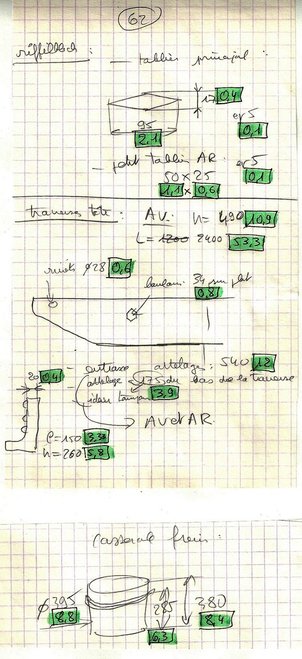 62
: tablier principal :
17 0,4
95
2,1
ep 5
0,1
petit tablier AR.
50 x 25
1,1 x 0,6
ep 5
0,1
traverses tête : AV. h = 490 10,9
L = 1200 2400 53,3
rivets ø 28 0,6
34 sur plat
0,8
20 0,4
entraxe attelage : 540 12
attelage 175 du bas de la traverse
idem tampon 3,9
AV et AR.
e = 150 3,3
h = 260 5,8
casserole frein :
ø 395
8,8
285
6,3
380
8,4